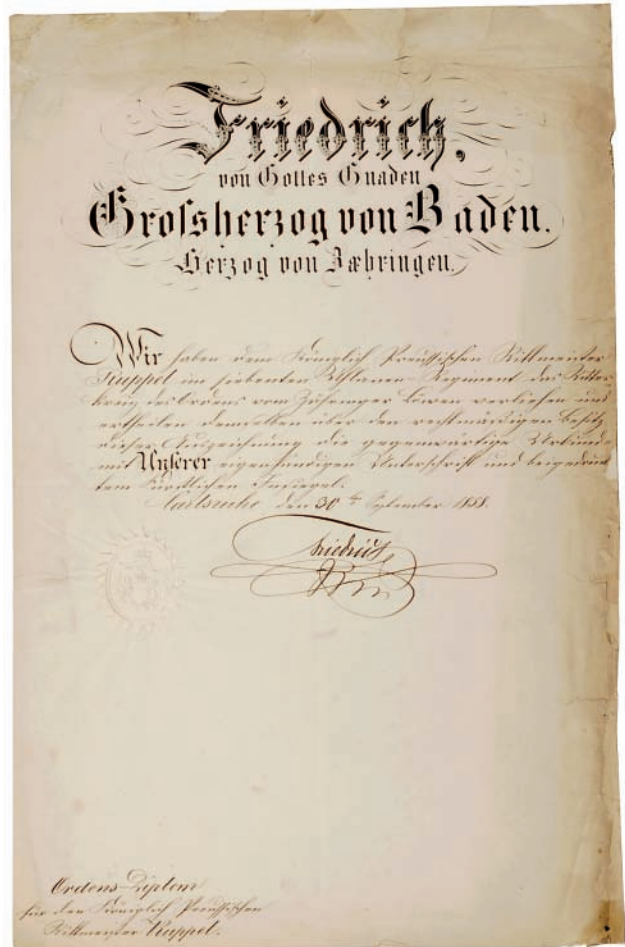 Friedrich,
von Gottes Gnaden
Grofsherzog von Baden.
Herzog von Zæhringen.
Wir haben dem Königlich Preußischen Rittmeister
Kuppel im siebenten Uhlanen-Regiment das Ritter
kreuz des Ordens vom Zähringer Löwen verliehen und
ertheilen demselben über den rechtmäßigen Besitz
dieser Auszeichnung die gegenwärtige Urkunde
mit Unserer eigenhändigen Unterschrift und beigedruck
tem Fürstlichen Insiegel.
Carlsruhe den 30ten September
Friedrich
Ordens-Diplom
für den Königlich Preußischen
Rittmeister Kuppel.